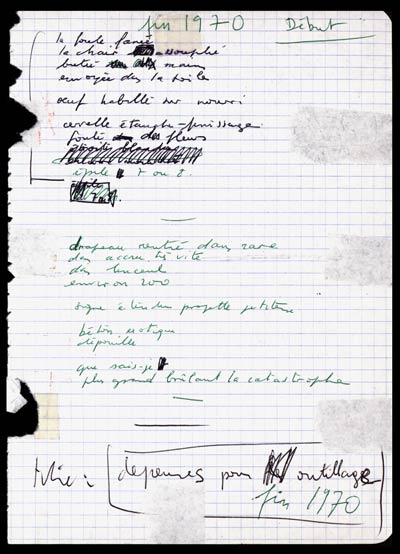 fin 1970 Début
la foule fanée
la chair
butée mains
envoyée des la toile
œuf habillé sur nourri
cervelle étanche-puissage
foulé des fleurs
épile 7 ou 8.
drapeau rentré dans rare
des accru très vite
des linceul
environ 200
signe étendu projette
béton exotique
dépouille
que sais-je
plus grand brûlant la catastrophe
titre : dépenses pour outillage
fin 1970